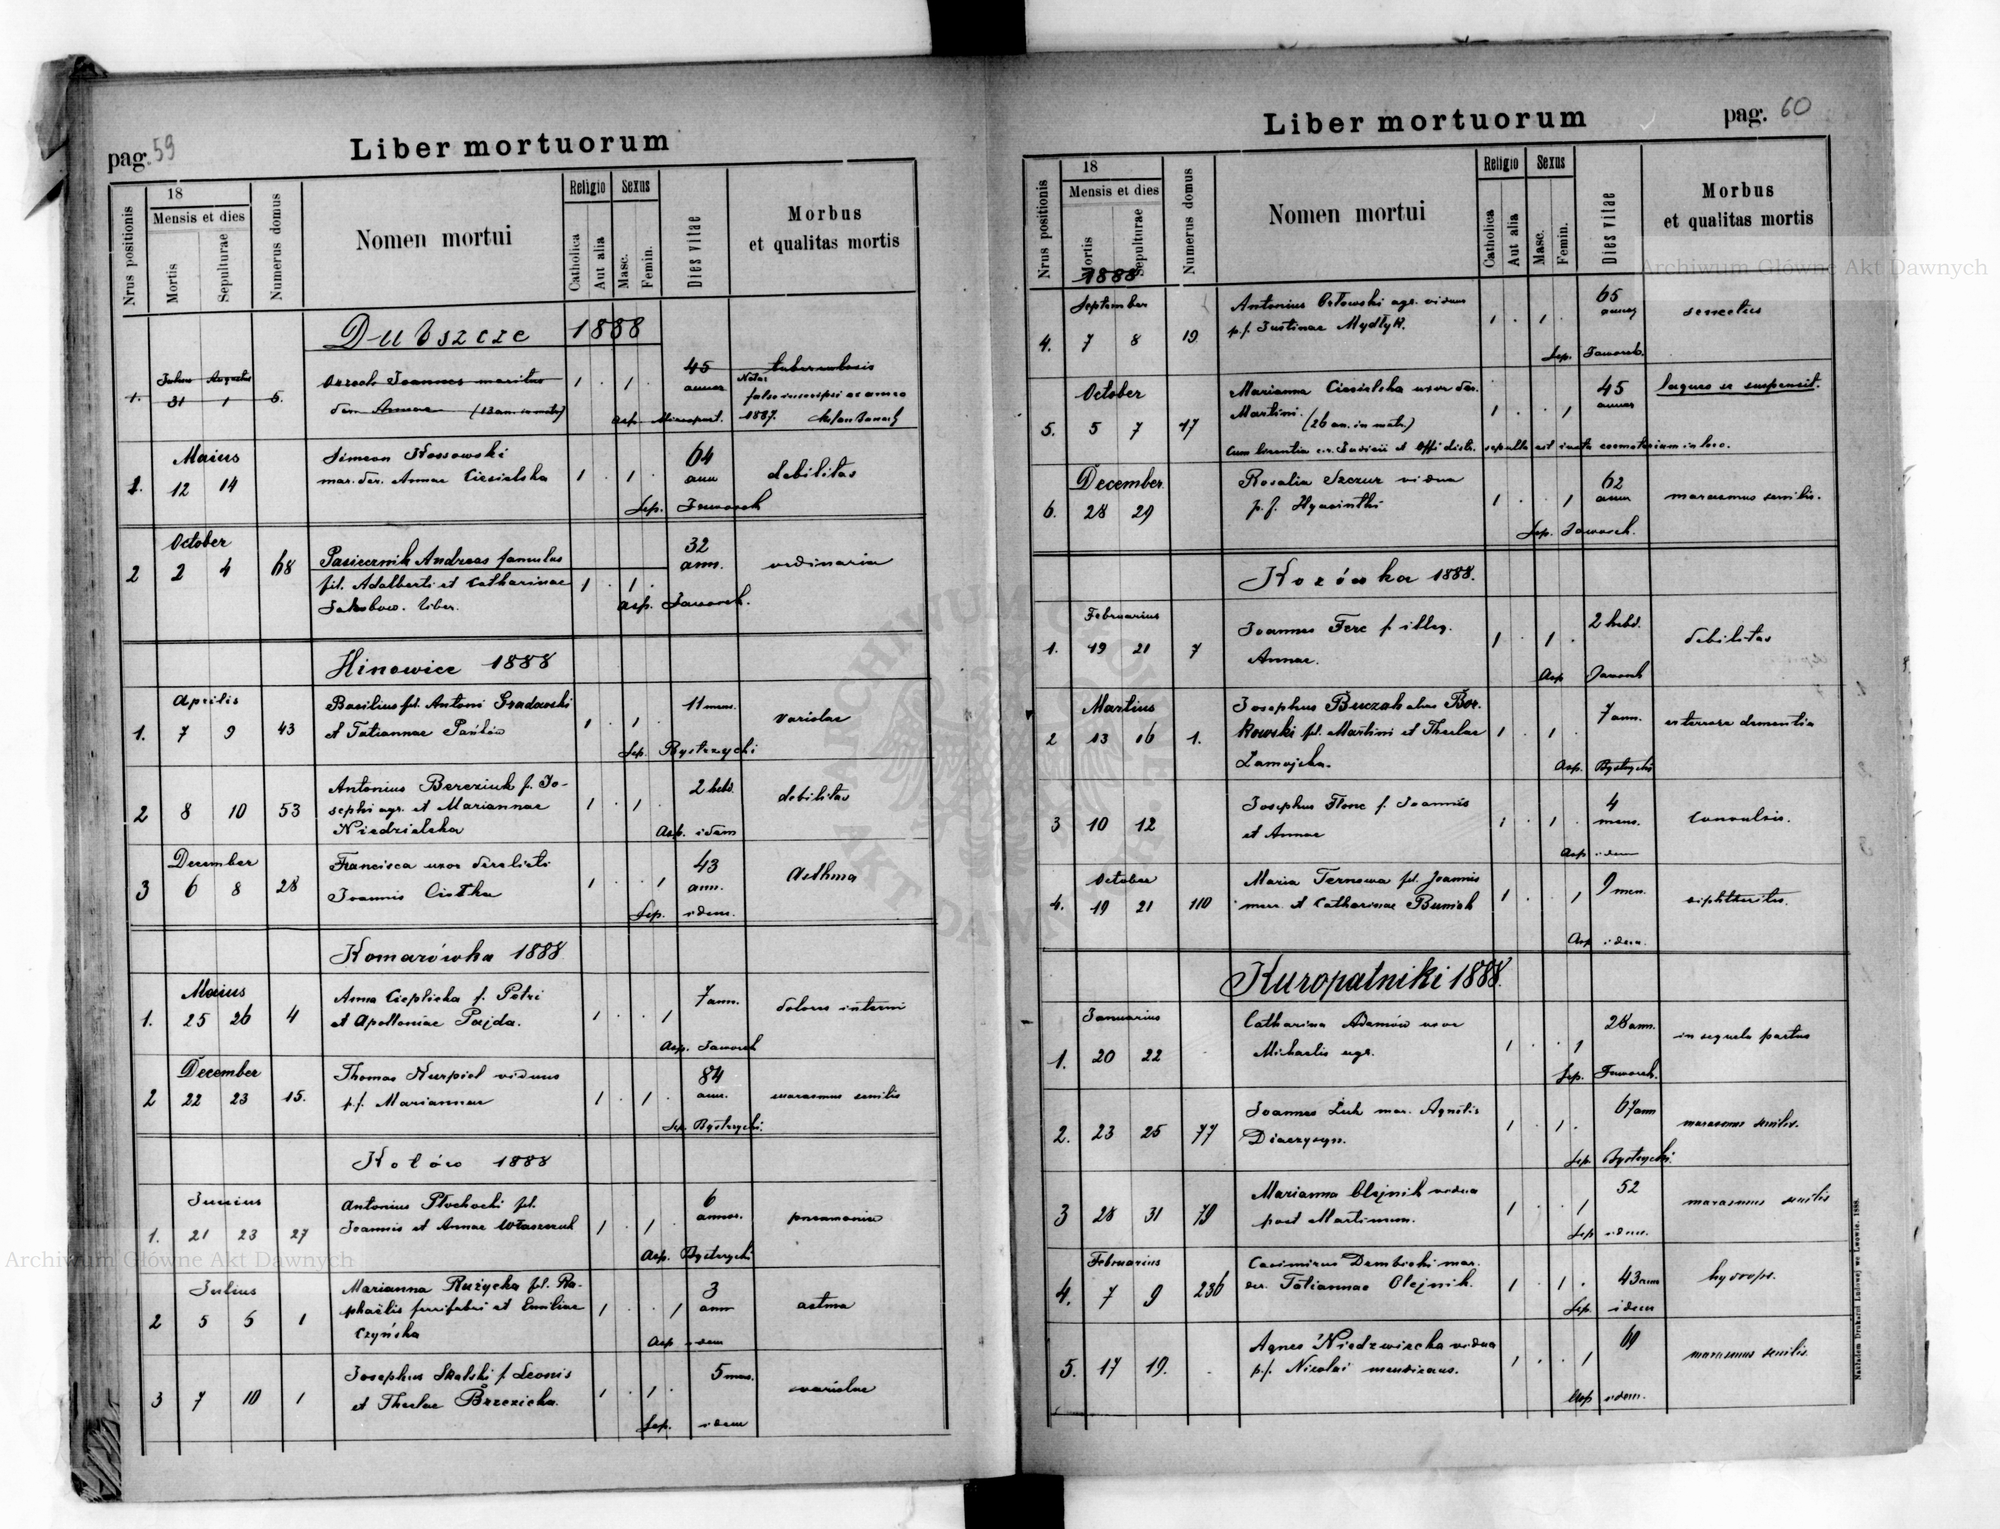 pag. 59
Liber mortuorum
Nrus positionis
18
Mensis et dies
Mortis
Sepulturae
Numerus domus
Nomen mortui
Religio
Catholica
Aut alia
Sexus
Masc.
Femin.
Dies vitae
Morbus
et qualitas mortis
Dubszcze 1888
1. Julius Augustus 31 1 6. Joannes maritus 45 tuberculosis
annos Nota:
der. Annae (13 an. in matr.) 1 . 1 . 1887.
Maius Simeon Kossowski 64
1. 12 14 mar. der. Annae Ciesielska 1 . 1 . ann debilitas
Sep. Jaworek
October 32
2 2 4 68 Pasiecznik Andreas famulus ann. ordinaria
fil. Adalberti et Catharinae 1 . 1 .
Jakobow. liber. Asp. Jaworek.
Hinowice 1888
Aprilis Basilius fil. Antoni Gradowski 11 mens.
1. 7 9 43 et Tatiannae Pańków 1 . 1 . variolae
Sep. Bystrzycki
Antonius Bereziuk f. Jo- 2 hebd.
2 8 10 53 sephi agr. et Mariannae 1 . 1 . debilitas
Niedzielska Asp. idem
December Francisca uxor derelicti 43
3 6 8 28 Joannis Cistka 1 . . 1 ann. Asthma
Sep. idem.
Komarówka 1888
Maius Anna Cieplicka f. Petri 7 ann.
1. 25 26 4 et Apolloniae Pajda. 1 . . 1 dolores interni
Asp. Jaworek
December Thomas Nurpiol viduus 84
2 22 23 15. p.f. Mariannae 1 . 1 . ann. marasmus senilis
Sep. Bystrzycki.
Kotów 1888
Junius Antonius Płochocki fil. 6
1. 21 23 27 Joannis et Annae Własczuk 1 . 1 . annor. pneumonia
Asp. Bystrzycki
Julius Marianna Różycka fil. Ra- 3
2 5 6 1 phaelis ferrifabri et Emiliae 1 . . 1 ann astma
Czyńska Asp idem
Josephus Skalski f. Leonis 5 mens.
3 7 10 1 et Theclae Brzezicka. 1 . 1 . variolae
Sep. idem
Liber mortuorum
pag. 60
Nrus positionis
18
Mensis et dies
Mortis
Sepulturae
1888
Numerus domus
Nomen mortui
Religio
Catholica
Aut alia
Sexus
Masc.
Femin.
Dies vitae
Morbus
et qualitas mortis
September Antonius Orłowski agr. viduus 65
4. 7 8 19 p.f. Justinae Mydłyk. 1 . 1 . annos senectus
Sep. Jaworek.
October Marianna Ciesielska uxor der. 45 laqueo se suspensit.
5. 5 7 17 Martini. (26 an. in matr.) 1 . . 1 annos
Cum licentia sepulta est iuxta coemeterium in loco.
December Rosalia Szczur vidua 62
6. 28 29 p.f. Hyacinthi 1 . . 1 annor marasmus senilis.
Sep. Jaworek.
Kozówka 1888.
Februarius Joannes Ferc f. illeg. 2 hebd.
1. 19 21 7 Annae. 1 . 1 . debilitas
Asp Jaworek
Martius Josephus Buczak alias Bor- 7 ann.
2 13 16 1. kowski fil. Martini et Theclae 1 . 1 . dementia
Zamojska. Asp. Bystrzycki
Josephus Flonc f. Joannis 4
3 10 12 et Annae 1 . 1 . mens. convulsis.
Asp idem
October Maria Ternowa fil. Joannis 9 men.
4. 19 21 110 et Catharinae Buniak 1 . . 1 diphtheritis.
Asp idem.
Kuropatniki 1888.
Januarius Catharina Adamów uxor 28 ann.
1. 20 22 . Michaelis agr. 1 . . 1 in sequela partus
Sep. Jaworek.
Joannes Luk mar. Agnetis 67 ann
2. 23 25 77 Diaczyszyn. 1 . 1 . marasmus senilis.
Sep. Bystrzycki.
Marianna Olejnik vidua 52
3 28 31 79 post Martinum. 1 . . 1 marasmus senilis
Sep idem.
Februarius Casimirus Dembicki mar. 43 ann
4. 7 9 236 der. Tatiannae Olejnik. 1 . 1 . hydrops.
Sep. idem
Agnes Niedzwiecka vidua 60
5. 17 19. . p.f. Nicolai mendicans. 1 . . 1 marasmus senilis.
Asp idem.
Nakładem Drukarni Ludowej we Lwowie. 1888.
Archiwum Główne Akt Dawnych
Archiwum Główne Akt Dawnych
ARCHIWUM GŁÓWNE AKT DAWNYCH